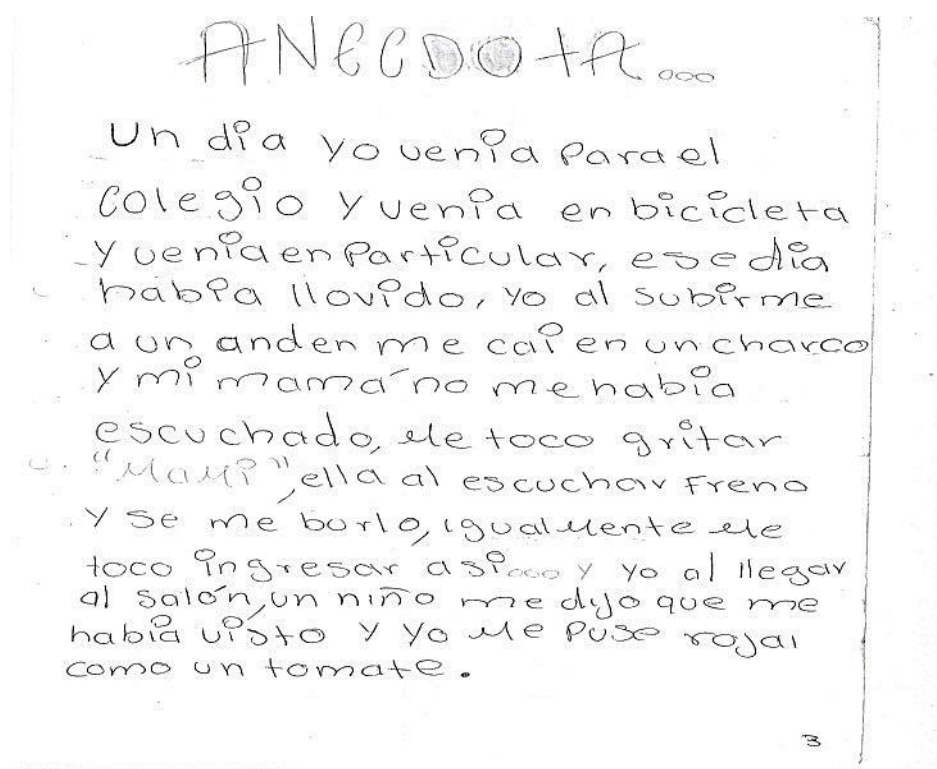 ANECDOTA...
Un día yo venía para el
colegio y venía en bicicleta
y venía en particular, ese día
había llovido, yo al subirme
a un anden me caí en un charco
y mi mamá no me había
escuchado, me toco gritar
"Mami", ella al escuchar Freno
y se me burlo, igualmente me
toco ingresar así... y yo al llegar
al salón, un niño me dijo que me
había visto y yo me puse roja
como un tomate.
3